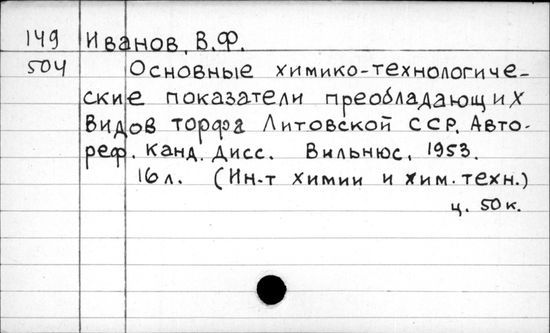 149 Иванов, В.Ф.
504 Основные химико-технологиче-
ские показатели преобладающих
видов торфа Литовской ССР. Авто-
реф. канд. дисс. Вильнюс, 1953.
16 л. (Ин-т химии и хим. техн.)
ц. 50 к.